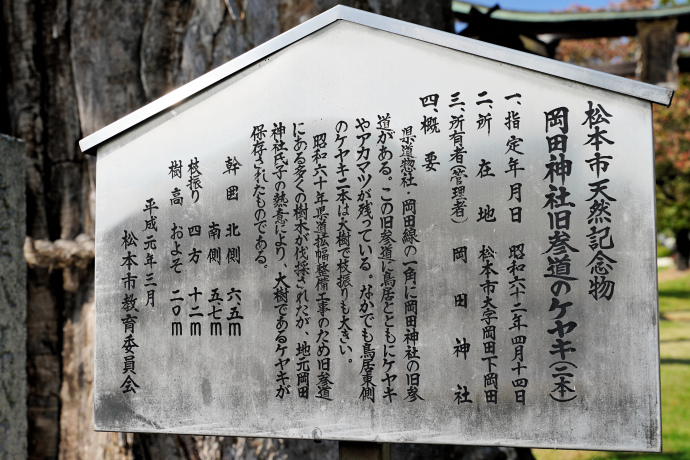 松本市天然記念物
岡田神社旧参道のケヤキ(二本)
一、指定年月日 昭和六十二年四月十四日
二、所在地 松本市大字岡田下岡田
三、所有者(管理者) 岡田神社
四、概要
県道惣社・岡田線の一角に岡田神社の旧参
道がある。この旧参道に鳥居とともにケヤキ
やアカマツが残っている。なかでも鳥居東側
のケヤキ二本は大樹で枝振りも大きい。
昭和六十年県道拡幅整備工事のため旧参道
にある多くの樹木が伐採されたが、地元岡田
神社氏子の熱意により、大樹であるケヤキが
保存されたものである。
幹囲 北側 六.五m
南側 五.七m
枝振り 四方 十二m
樹高 およそ 二〇m
平成元年三月
松本市教育委員会